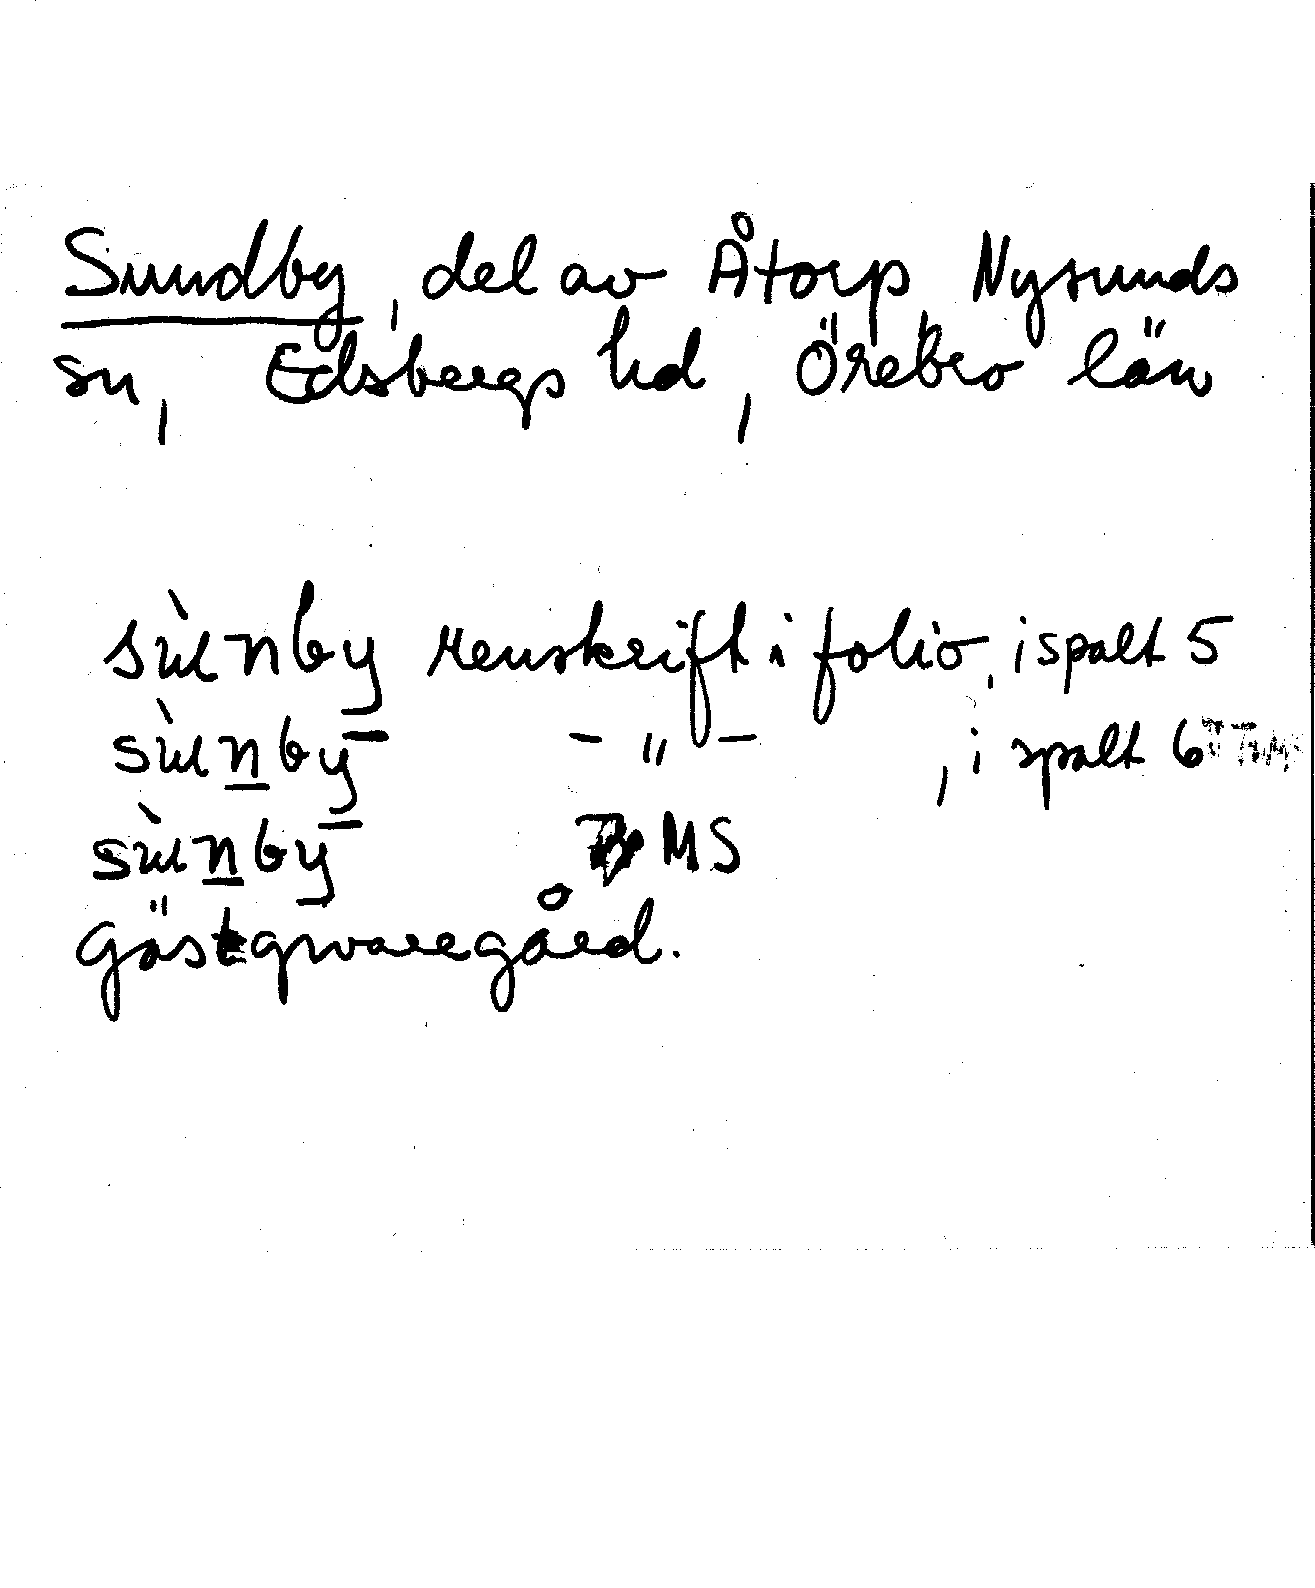 Sundby, del av Åtorp Nysunds
sn, Edsbergs hd, Örebro län
sùnby renskrift i folio, i spalt 5
sùn̲by̅ – " – , i spalt 6
sùn̲by̅ MS
gästgivaregård.